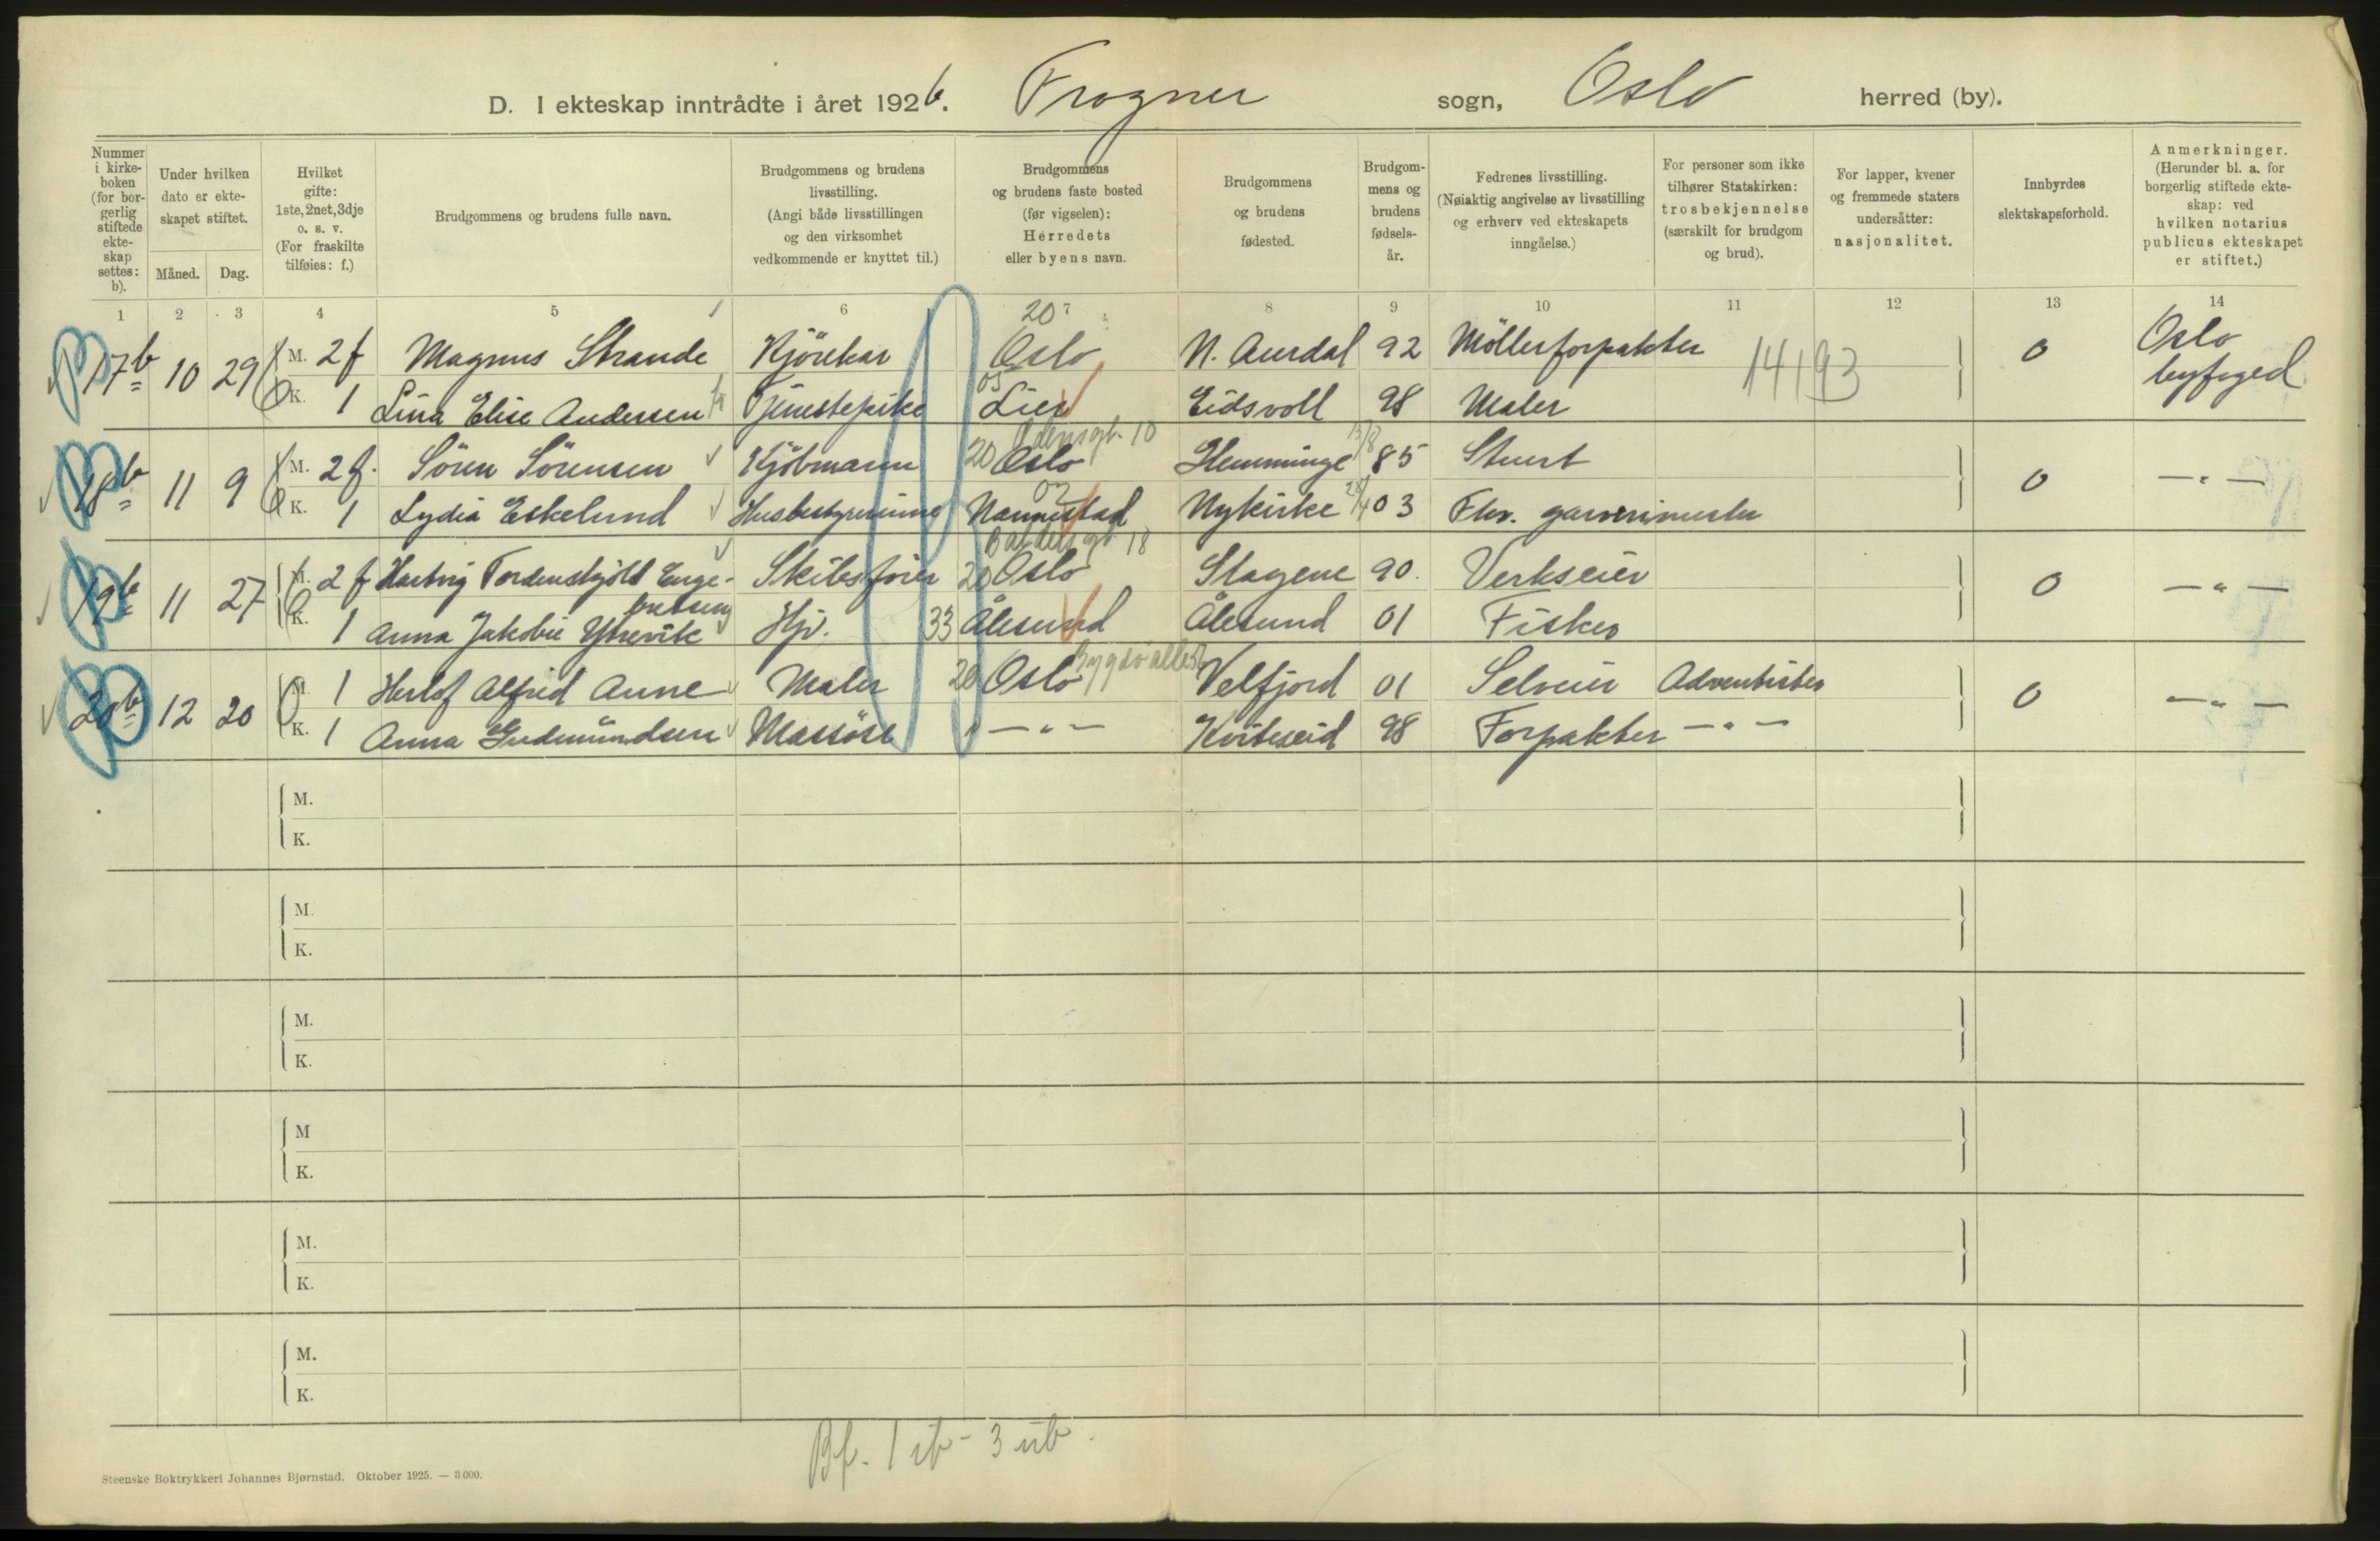 D. I ekteskap inntrådte i året 1926. Frogner sogn, Oslo herred (by).
Nummer i kirkeboken (for borgerlig stiftede ekteskap settes: b).
Under hvilken dato er ekteskapet stiftet.
Måned. Dag.
Hvilket gifte: 1ste, 2net, 3dje o. s. v. (For fraskilte tilføies: f.)
Brudgommens og brudens fulle navn.
Brudgommens og brudens livsstilling. (Angi både livsstillingen og den virksomhet vedkommende er knyttet til.)
Brudgommens og brudens faste bosted (før vigselen): Herredets eller byens navn.
Brudgommens og brudens fødested.
Brudgommens og brudens fødselsår.
Fedrenes livsstilling. (Nøiaktig angivelse av livsstilling og erhverv ved ekteskapets inngåelse.)
For personer som ikke tilhører Statskirken: trosbekjennelse (særskilt for brudgom og brud).
For lapper, kvener og fremmede staters undersåtter: nasjonalitet.
Innbyrdes slektskapsforhold.
Anmerkninger. (Herunder bl. a. for borgerlig stiftede ekteskap: ved hvilken notarius publicus ekteskapet er stiftet.)
1 2 3 4 5 6 7 8 9 10 11 12 13 14
20
17b 10 29 M. 2 f Magnus Strande Kjörekar Oslo N. Aurdal 92 Möllerforpakter 14193 0 Oslo byfoged
K. 1 Lina Elise Andersen Tjenestepike 05 Lier Eidsvoll 98 Maler
Odensgt. 10
18b 11 9 M. 2 f. Sören Sörensen Kjöbmann 20 Oslo Hemminge 85 Stuert 0 — " —
K. 1 Lydia Eskelund Husbestyrerinne 02 Nannestad Nykirke 03 Fhv. garverimester
Baldersgt 18
19b 11 27 M. 2 f Hartvig Tordenskjöld Engebretsen Skibsförer 20 Oslo Slagene 90. Verkseier 0 — " —
K. 1 Anna Jakobie Ytrevik Hjv. 33 Ålesund Ålesund 01 Fisker
20b 12 20 M. 1 Herlof Alfred Aune Maler 20 Oslo Velfjord 01 Selveier Adventister 0 — " —
K. 1 Anna Gudmundsen Massöse — " — Kviteseid 98 Forpakter — " —
M.
K.
M.
K.
M.
K.
M
K.
M.
K.
M.
K.
Bf. 1 ib - 3 ub.
Steenske Boktrykkeri Johannes Bjørnstad. Oktober 1925. — 3000.